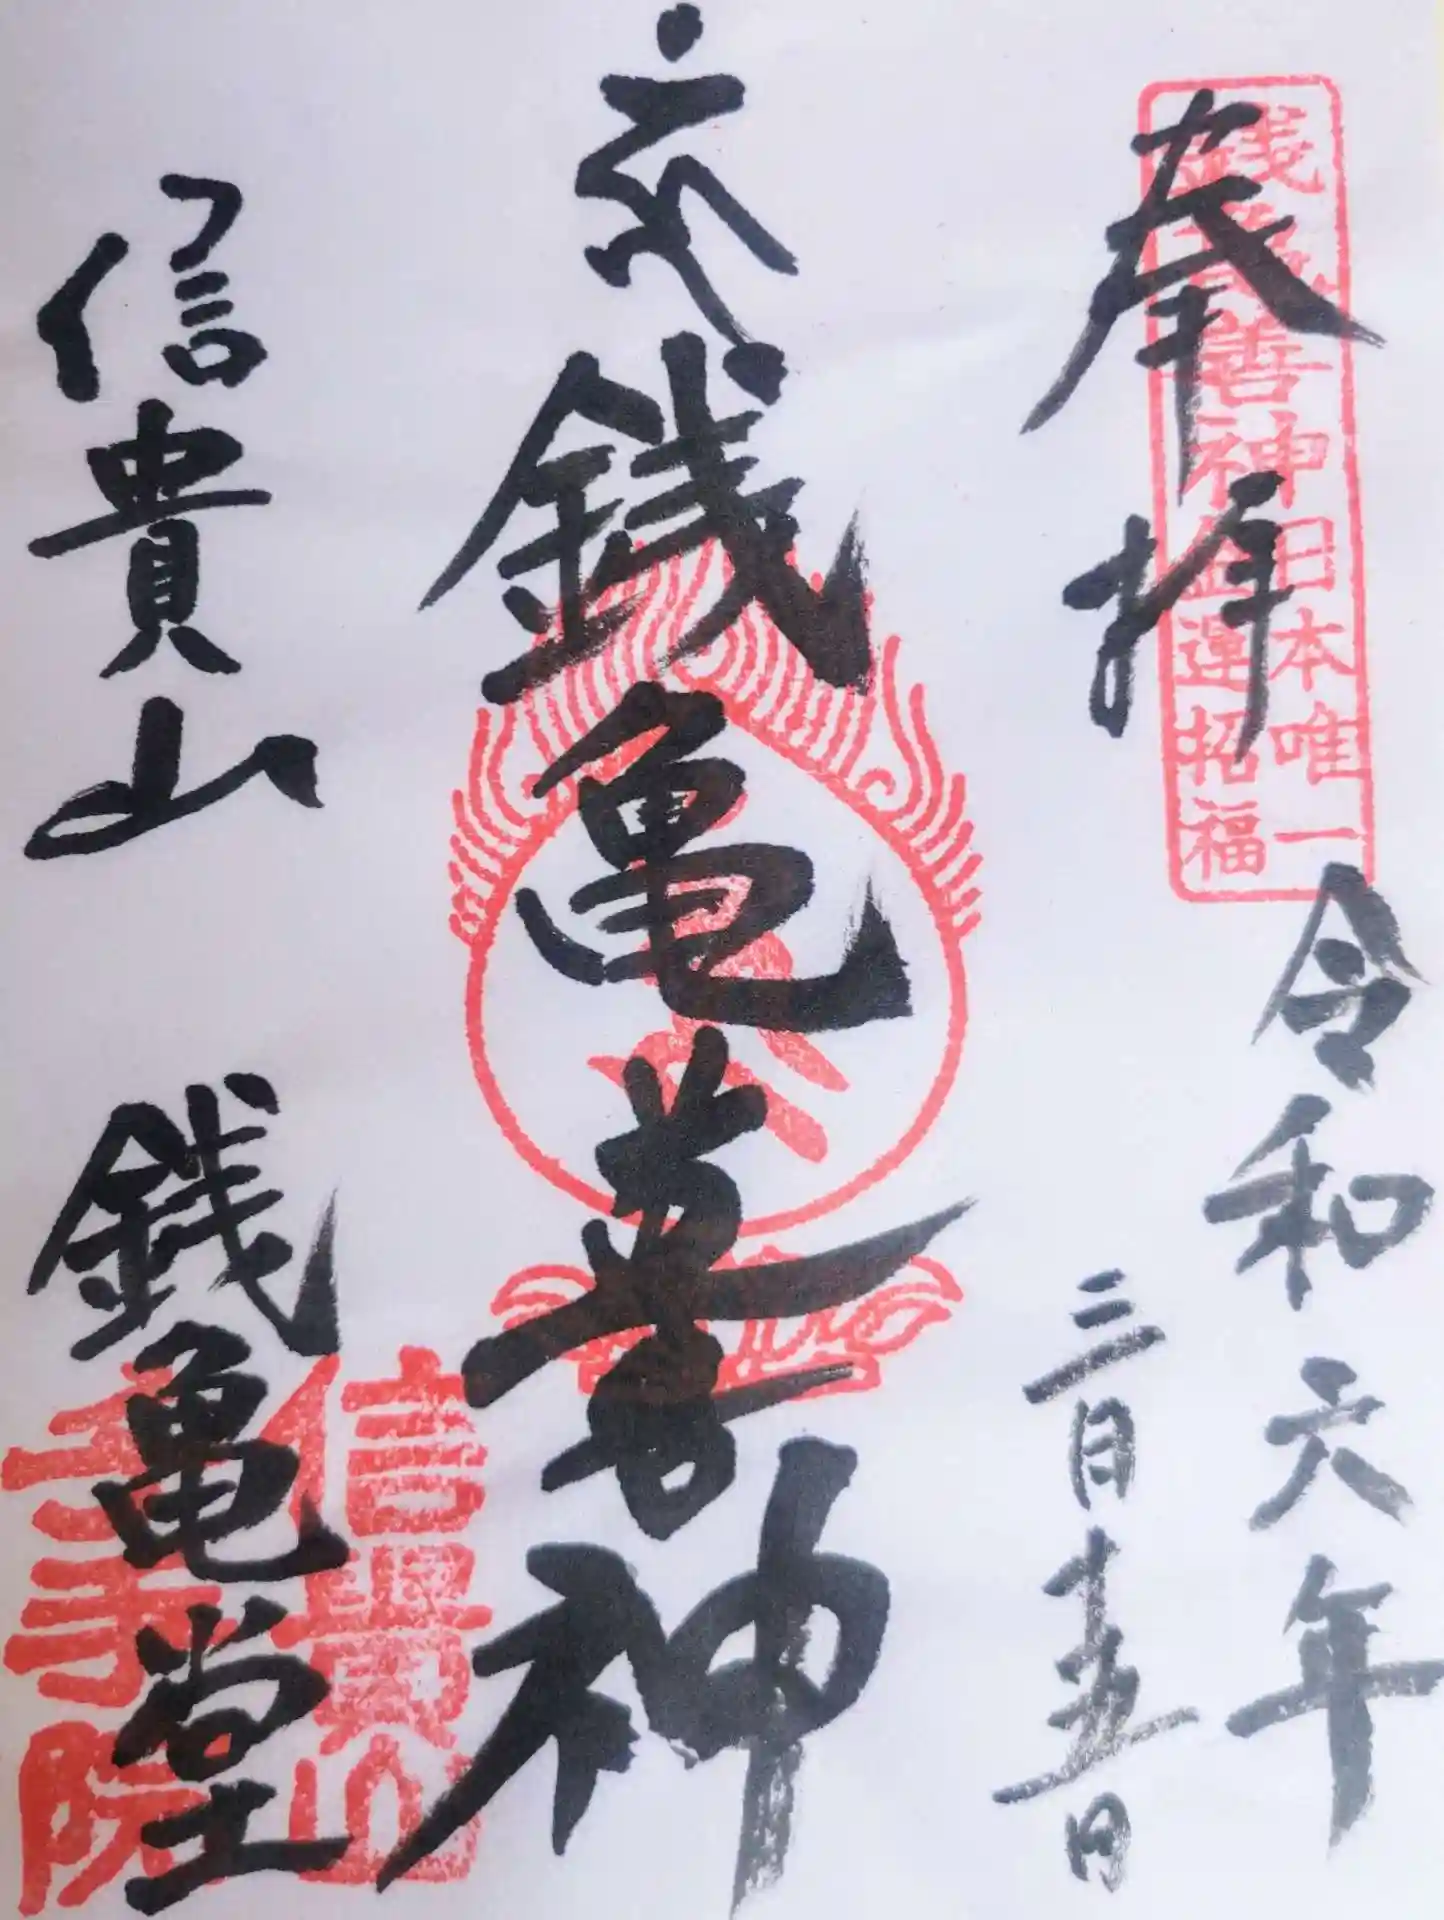 奉拝
銭亀善神
日本唯一
金運招福
令和六年
三月十五日
銭亀善神
信貴山 銭亀堂
信貴山
千手院